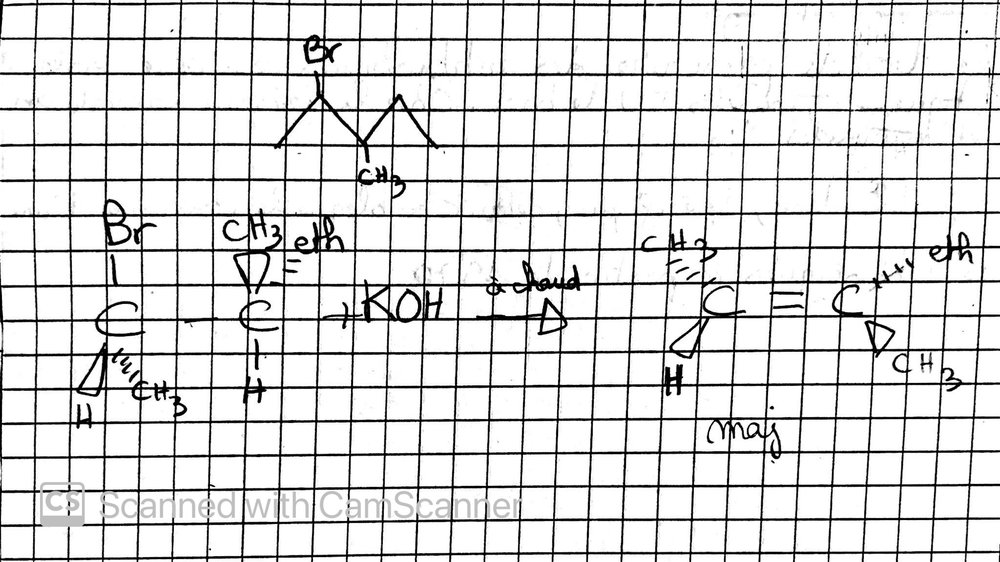 Br
CH3
Br
CH3 eth
C — C + KOH à chaud
H CH3
H
CH3 eth
C = C
H CH3
maj
CS Scanned with CamScanner